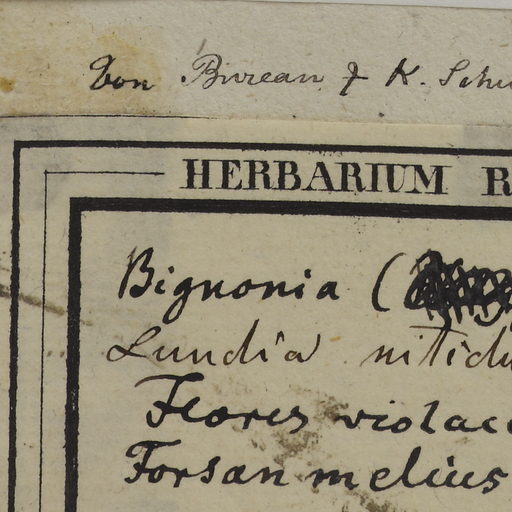 Von Bureau & K. Schu
HERBARIUM R
Bignonia (
Lundia nitidu
Flores violac
Forsan melius